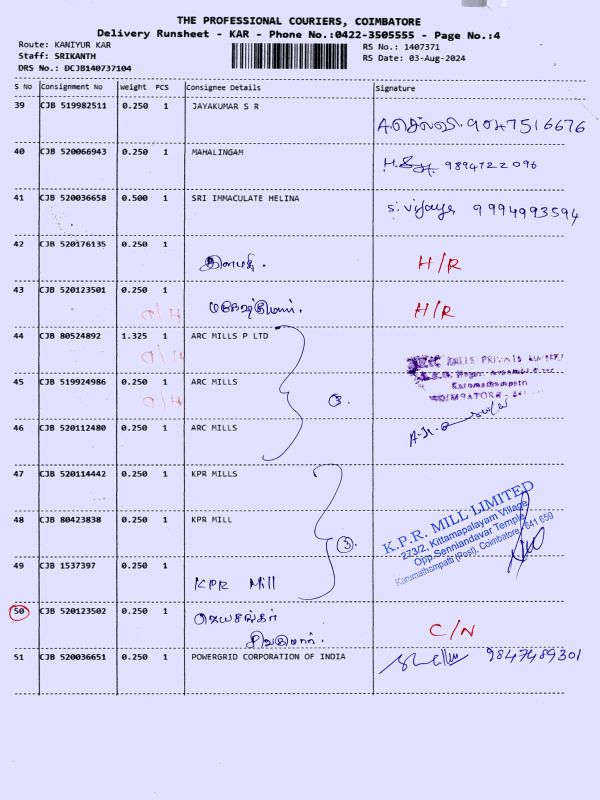 THE PROFESSIONAL COURIERS, COIMBATORE
Delivery Runsheet - KAR - Phone No.:0422-3505555 - Page No.:4
Route: KANIYUR KAR
Staff: SRIKANTH
DRS No.: DCJB140737104
RS No.: 1407371
RS Date: 03-Aug-2024
S No Consignment No Weight PCS Consignee Details Signature
39 CJB 519982511 0.250 1 JAYAKUMAR S R
A.செல்வி. 9047516676
40 CJB 520066943 0.250 1 MAHALINGAM
9894722096
41 CJB 520036658 0.500 1 SRI IMMACULATE HELINA
S. Vijaya 9994993594
42 CJB 520176135 0.250 1
H/R
43 CJB 520123501 0.250 1
H/R
44 CJB 80524892 1.325 1 ARC MILLS P LTD
45 CJB 519924986 0.250 1 ARC MILLS
3.
46 CJB 520112480 0.250 1 ARC MILLS
MILLS PRIVATE LIMITED
Karumathampatti
COIMBATORE
47 CJB 520114442 0.250 1 KPR MILLS
48 CJB 80423838 0.250 1 KPR MILL
3.
K.P.R. MILL LIMITED
273/2, Kittampalayam Village
Opp.Senniandavar Temple
Karumathampatti (Post), Coimbatore - 641 659
49 CJB 1537397 0.250 1 KPR Mill
50 CJB 520123502 0.250 1 ஜெயசங்கர்
சிவகுமார்.
C/N
51 CJB 520036651 0.250 1 POWERGRID CORPORATION OF INDIA
9847489301